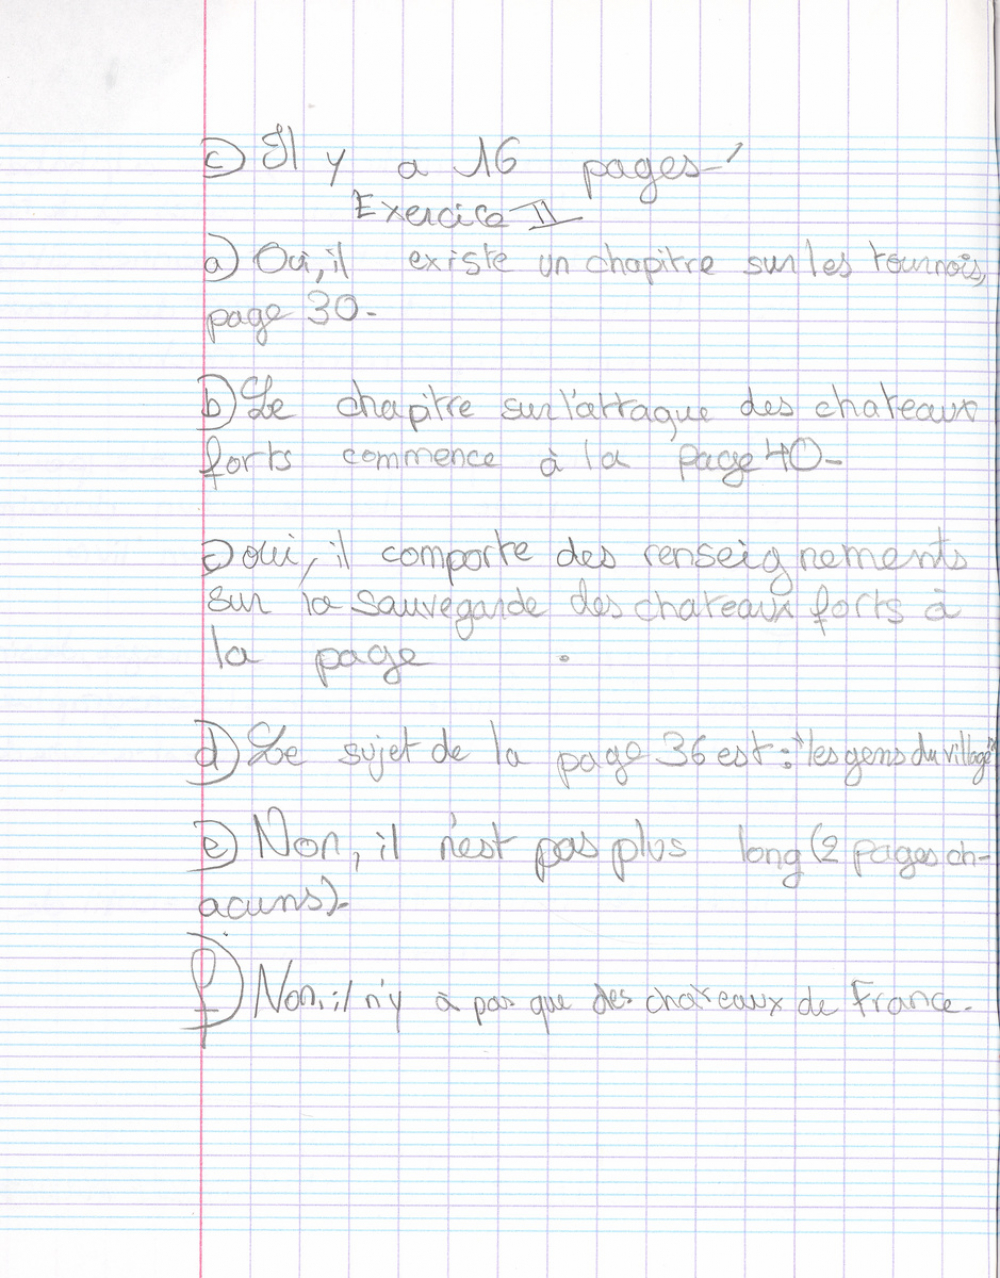 c) Il y a 16 pages-
Exercice II
a) Oui, il existe un chapitre sur les tournois,
page 30-
b) Le chapitre sur l'attaque des chateaux
forts commence à la page 40-
c) oui, il comporte des renseignements
sur la sauvegarde des chateaux forts à
la page .
d) Le sujet de la page 36 est : "les gens du village"
e) Non, il n'est pas plus long (2 pages ch-
acuns)-
f) Non, il n'y à pas que des chateaux de France.